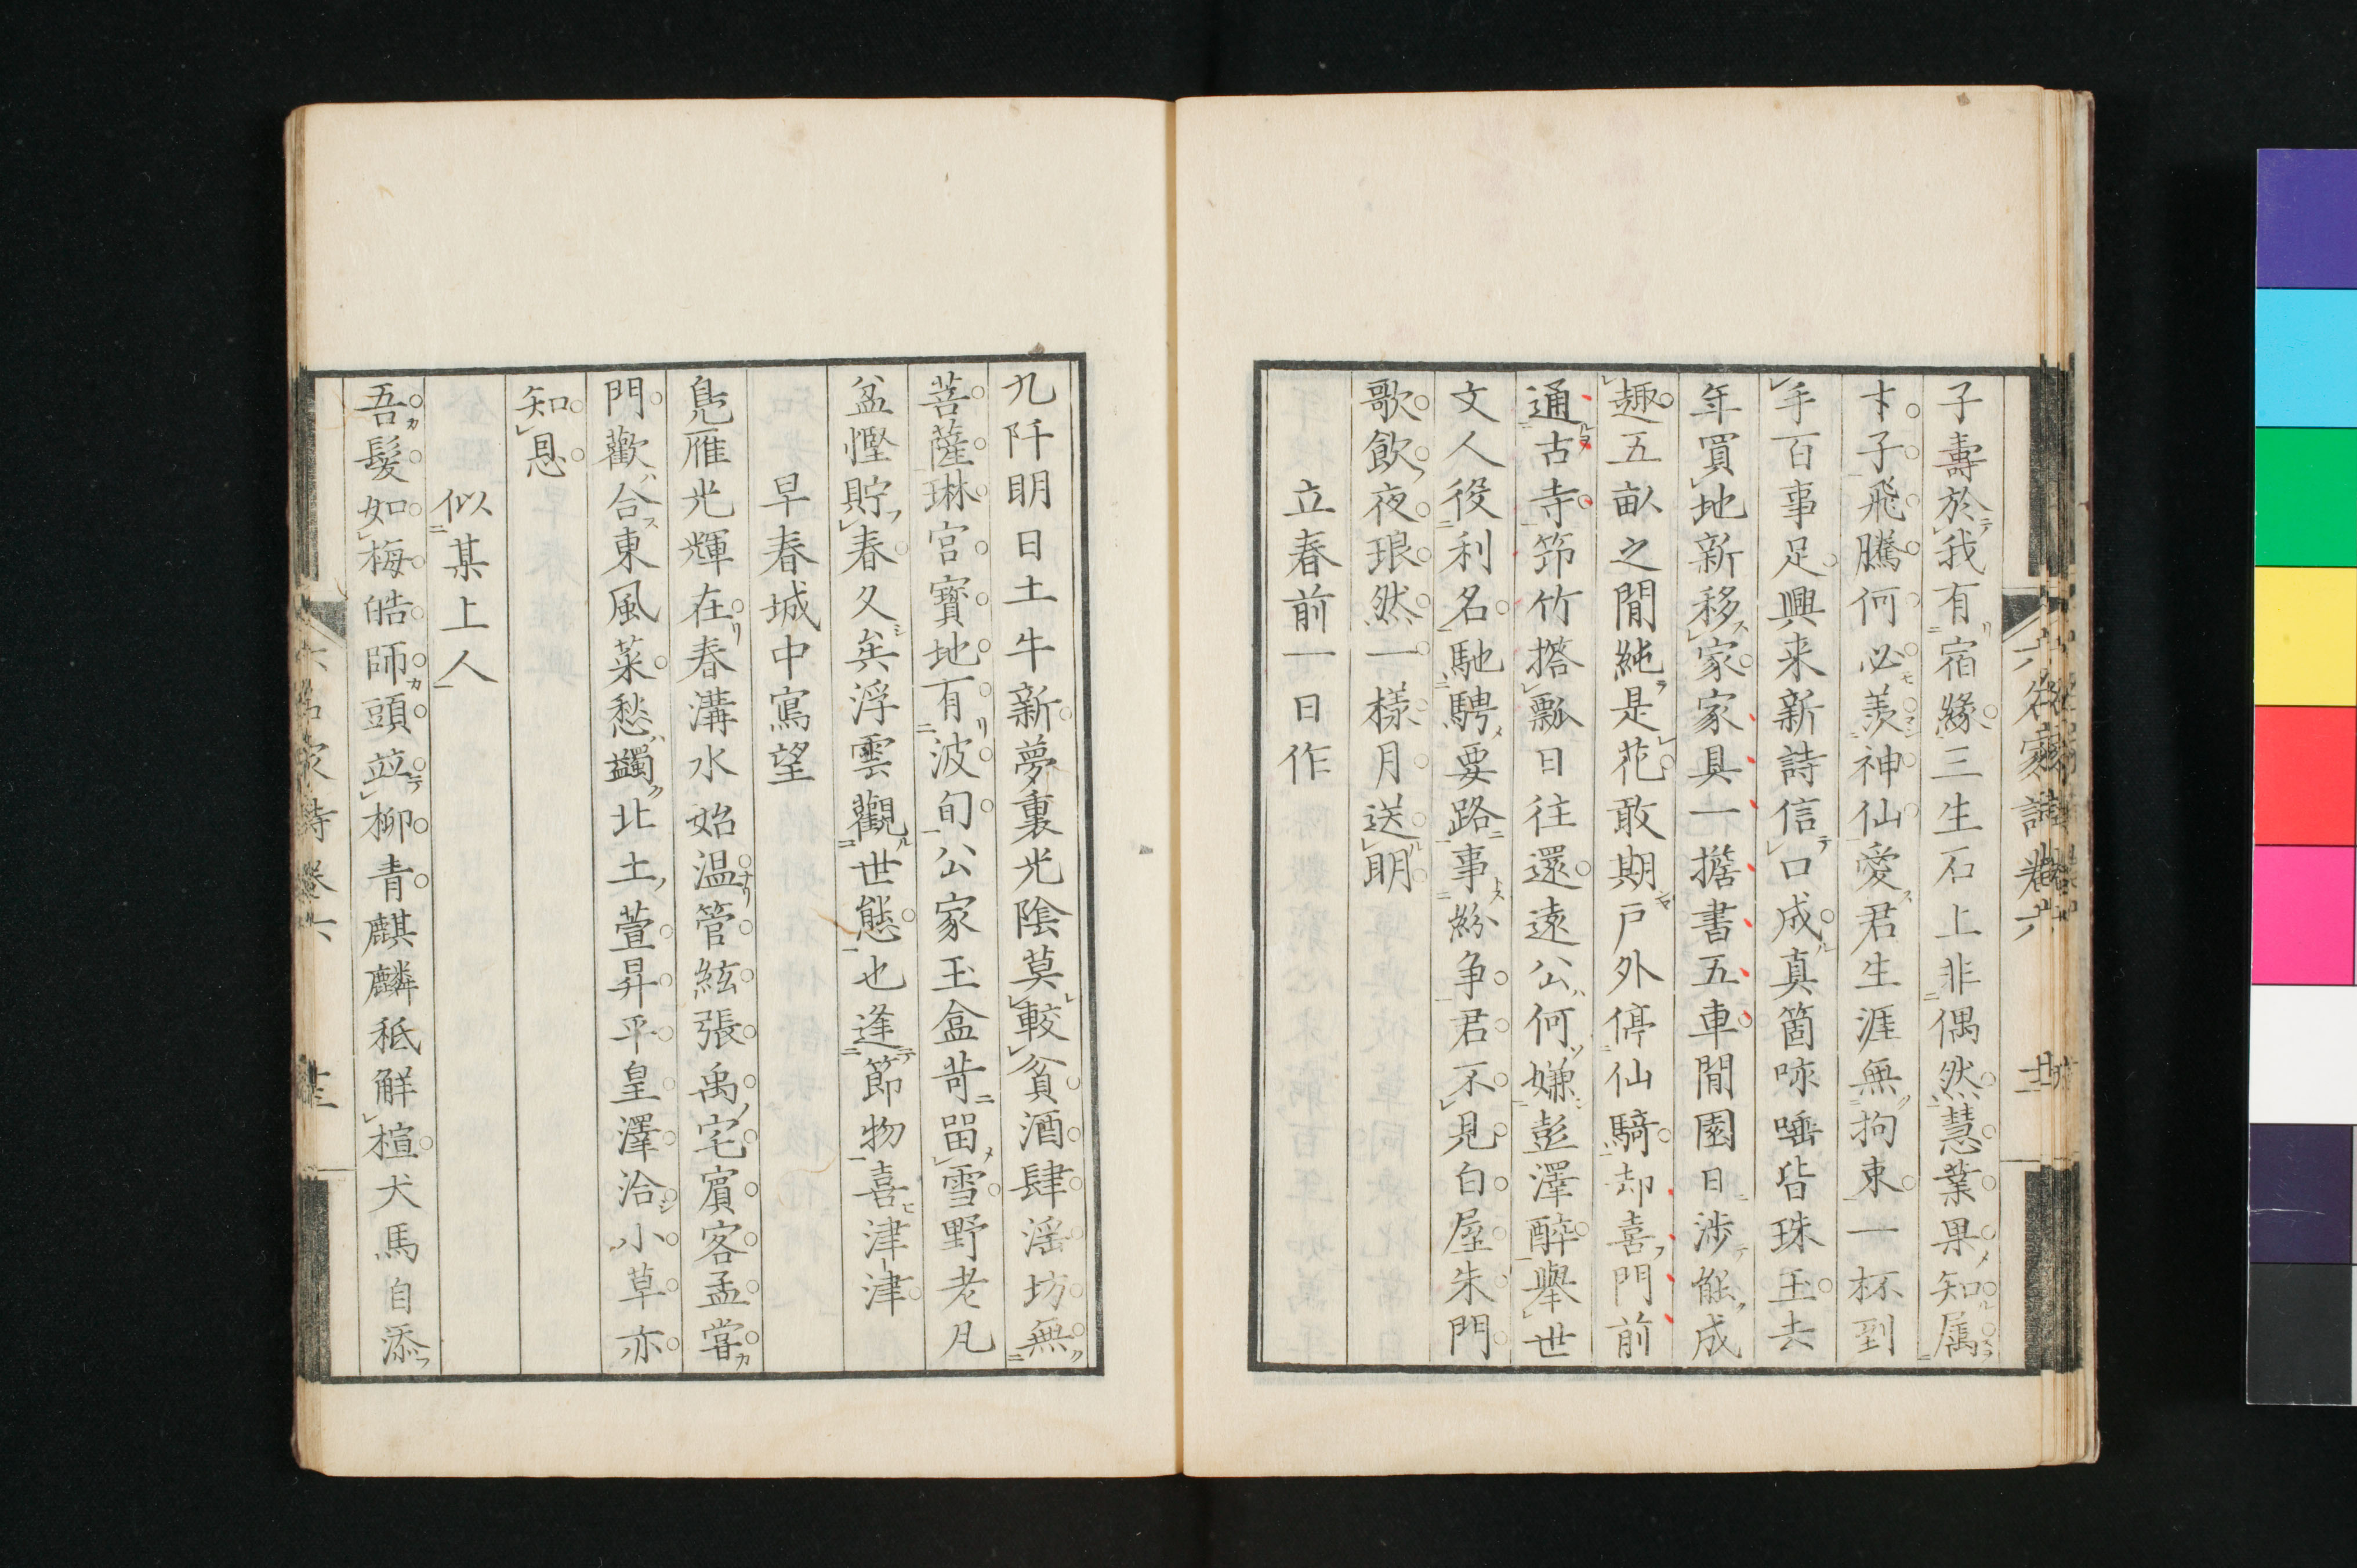 子壽於我有宿緣三生石上非偶然慧業果知属
才子飛騰何必羨神仙愛君生涯無拘束一杯到
手百事足興来新詩信口成真箇咏唾皆珠玉去
年買地新移家家具一擔書五車閒園日涉能成
趣五畝之閒純是花敢期戸外停仙騎却喜門前
通古寺笻竹搭瓢日往還遠公何嫌彭澤醉舉世
文人役利名馳騁要路事紛争君不見白屋朱門
歌飲夜琅然一様月送明
立春前一日作
九阡明日土牛新夢裏光陰莫較貧酒肆滛坊無
菩薩琳宮寳地有波旬公家玉盒苛畱雪野老凡
盆慳貯春久矣浮雲觀世態也逢節物喜津津
早春城中寫望
鳬雁光輝在春溝水始温管絃張禹宅賔客孟甞
門歡合東風菜愁蠲北土萱昇平皇澤洽小草亦
知恩
似某上人
吾髮如梅皓師頭竝柳青麒麟秖觧楦犬馬自添